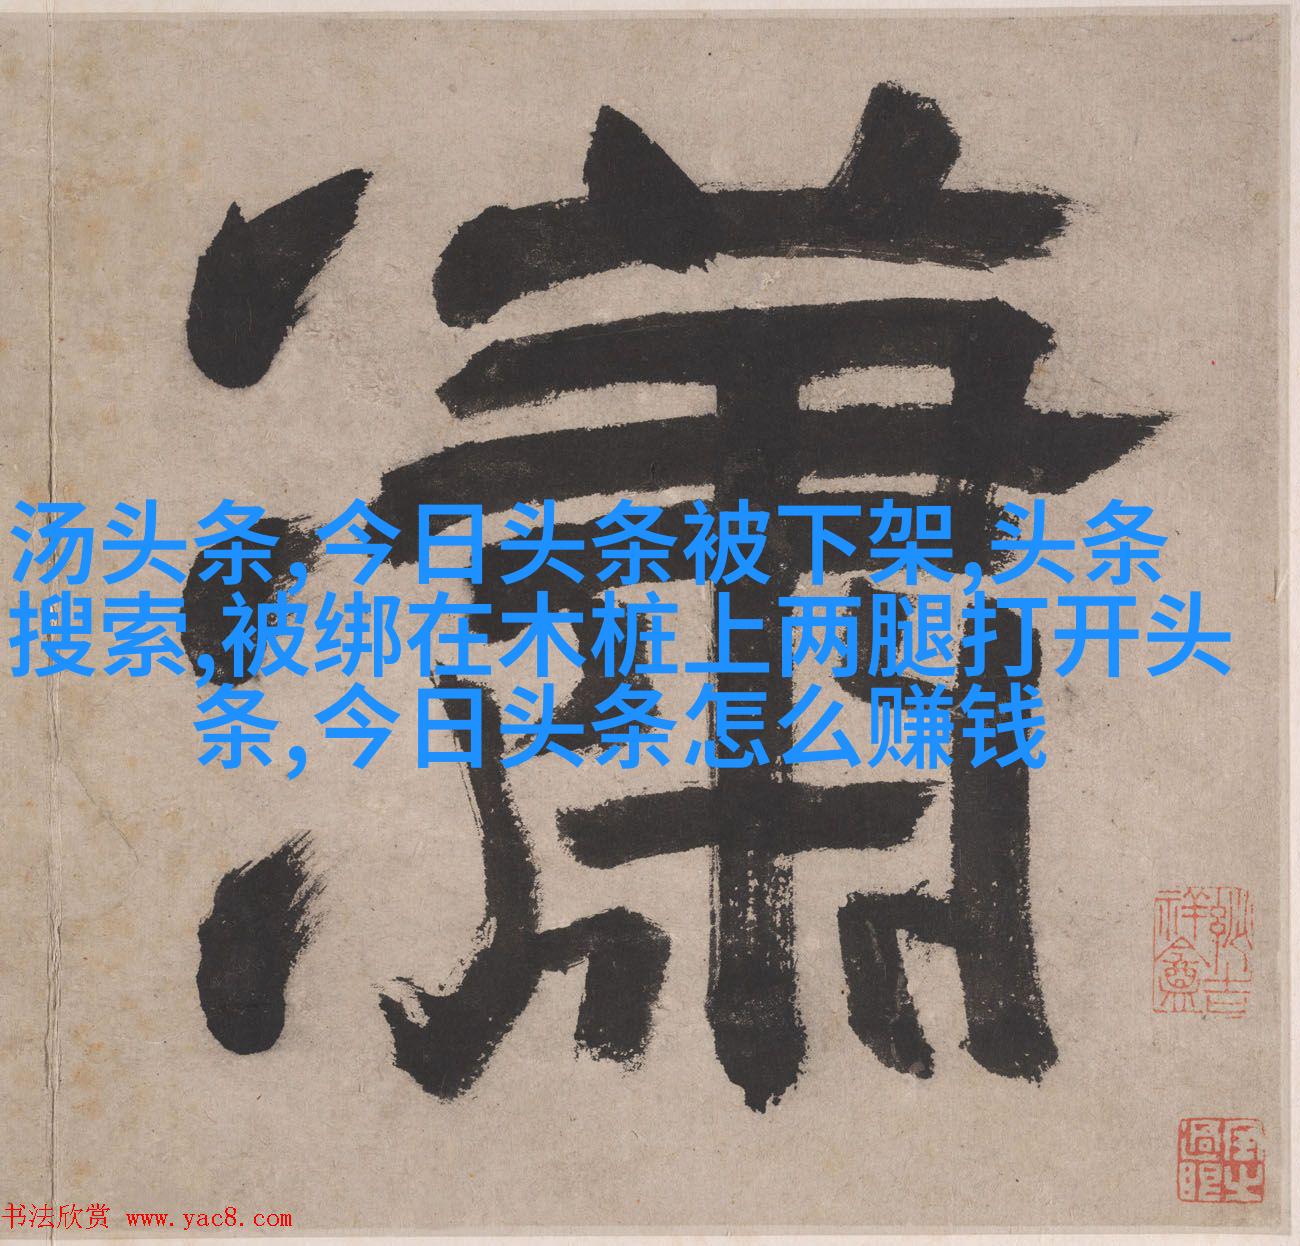 瀟
汤头条,今日头条被下架,头条
搜索,被绑在木桩上两腿打开头
条,今日头条怎么赚钱
书法欣赏 www.yac8.com